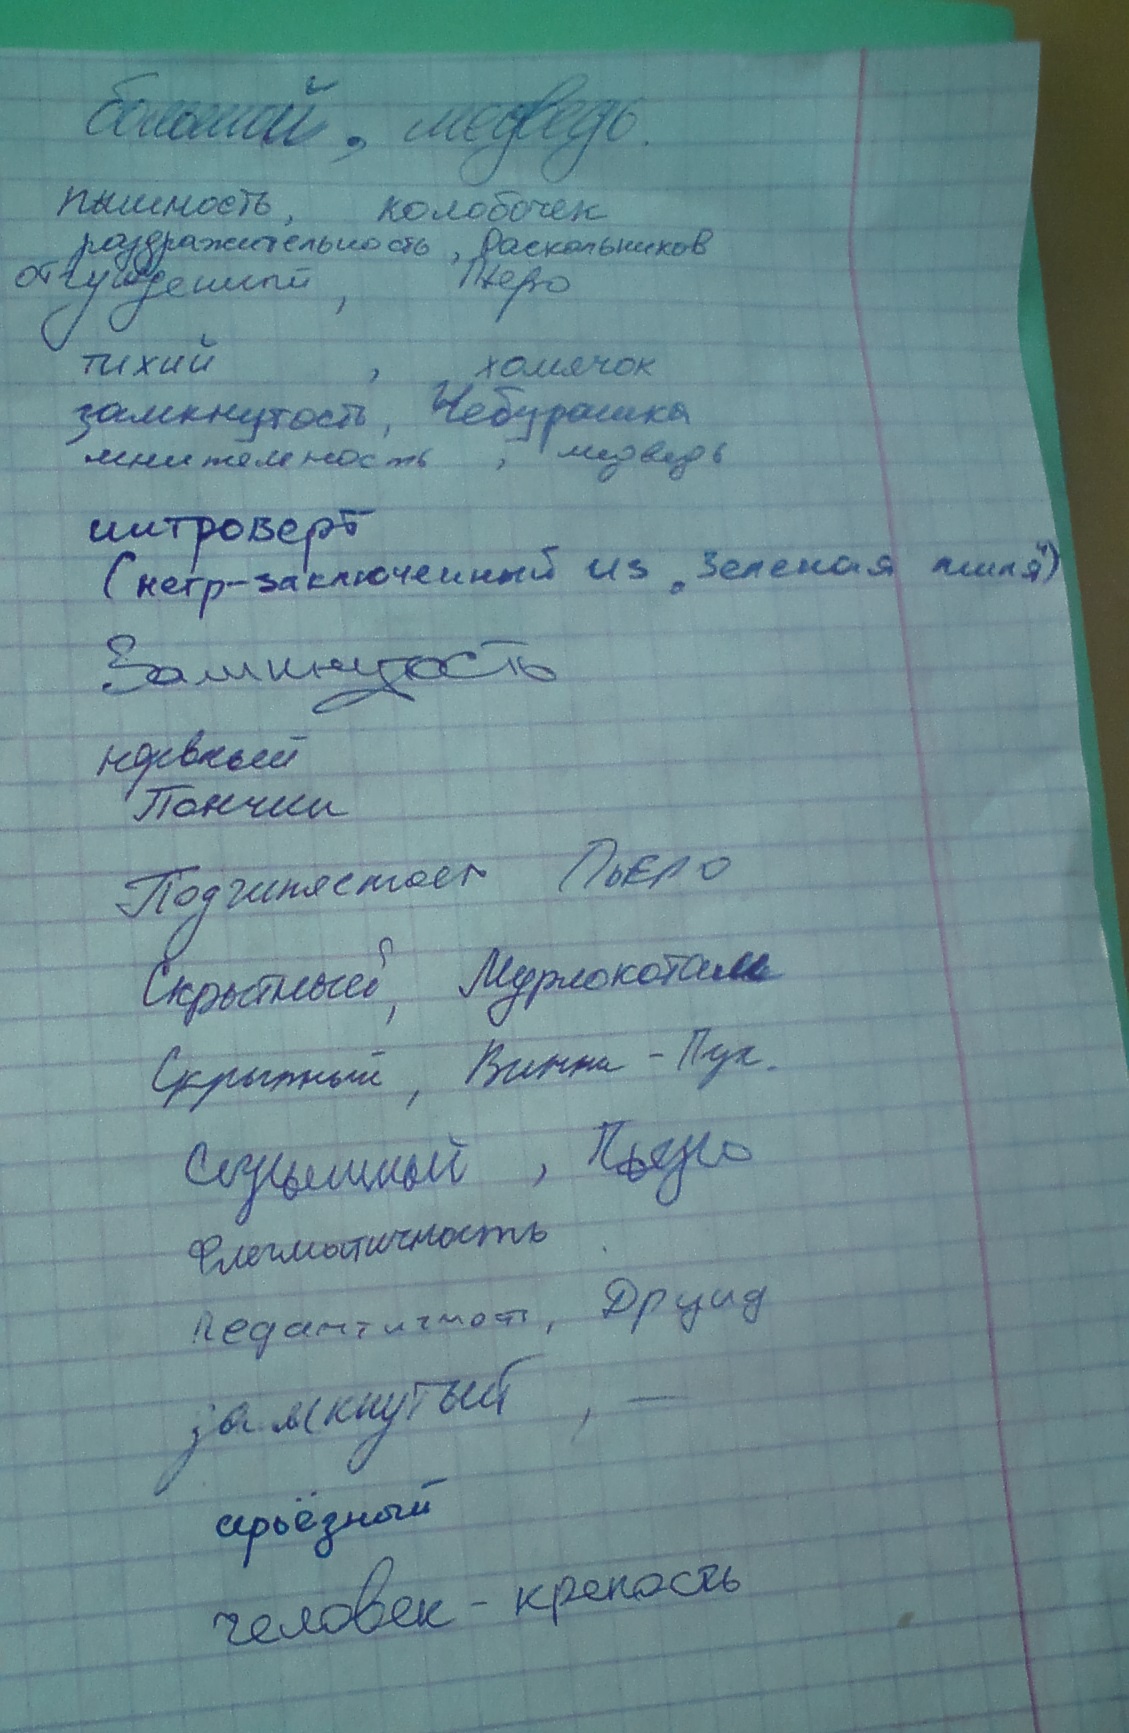 большой, медведь.
пышность, колобочек
раздражительность, Раскольников
отчужденный, Пьеро
тихий , хомячок
замкнутость, Чебурашка
мнительность , медведь
интроверт
(негр-заключенный из „Зеленая миля")
Замкнутость
наивный
Пончик
Подчиняет Пьеро
Скрытный, Мурлокотам
Скрытный, Винни - Пух.
, Пьеро
Флегматичность
педантичност, Друид
замкнутый , —
серьёзный
человек - крепость